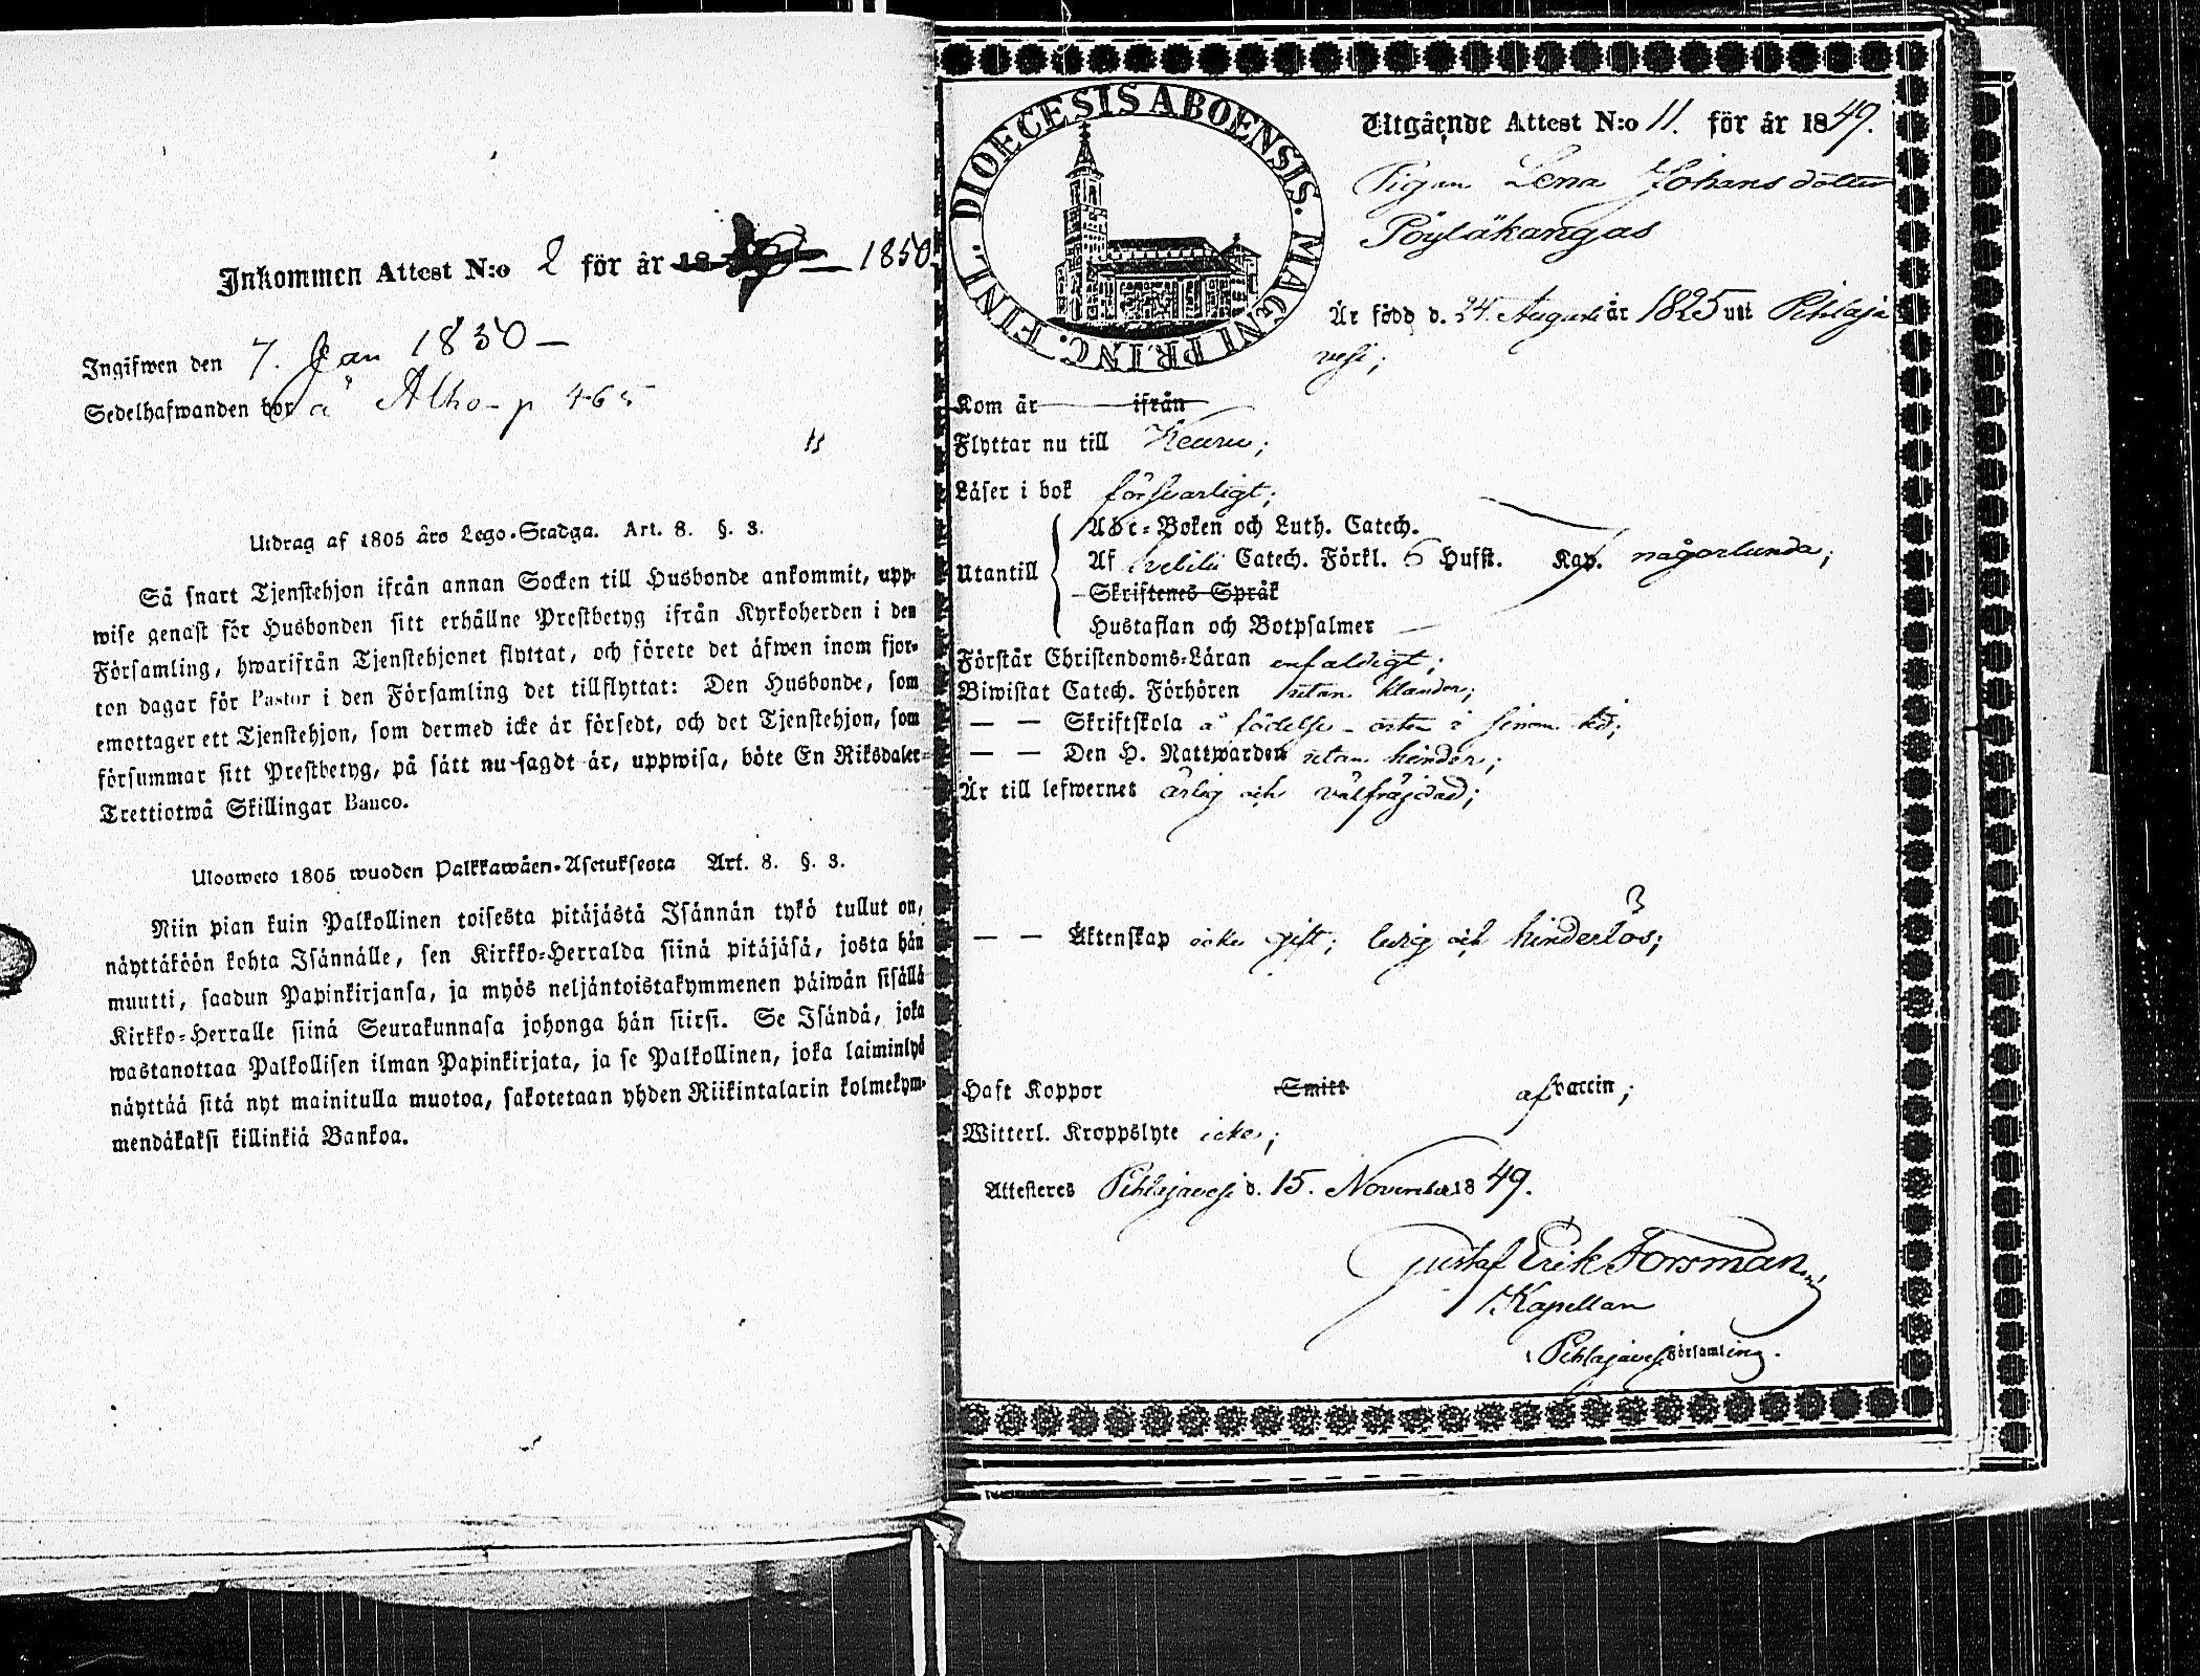 Inkommen Attest N:o 2 för år 18 1850
Ingifwen den 7. Jan 1850 —
Sedelhafwanden bor å Alho - p 465
Utdrag af 1805 års Lego-Stadga. Art. 8. §. 3.
Så snart Tjenstehjon ifrån annan Socken till Husbonde ankommit, upp-
wise genast för Husbonden sitt erhållne Prestbetyg ifrån Kyrkoherden i den
Församling, hwarifrån Tjenstehjonet flyttat, och förete det äfwen inom fjor-
ton dagar för Pastor i den Församling det tillflyttat: Den Husbonde, som
emottager ett Tjenstehjon, som dermed icke är försedt, och det Tjenstehjon, som
försummar sitt Prestbetyg, på sätt nu sagdt är, uppwisa, böte En Riksdaler
Trettiotwå Skillingar Banco.
Ulosweto 1805 wuoden Palkkawäen-Asetuksesta Art. 8. §. 3.
Niin pian kuin Palkollinen toisesta pitäjästä Isännän tykö tullut on,
näyttäköön kohta Isännälle, sen Kirkko-Herralda siinä pitäjäsä, josta hän
muutti, saadun Papinkirjansa, ja myös neljäntoistakymmenen päiwän sisällä
Kirkko-Herralle siinä Seurakunnasa johonga hän siirsi. Se Isändä, joka
wastanottaa Palkollisen ilman Papinkirjata, ja se Palkollinen, joka laiminlyö
näyttää sitä nyt mainitulla muotoa, sakotetaan yhden Riikintalarin kolmekym-
mendäkaksi killinkiä Bankoa.
DIOECESIS ABOENSIS. MAGNI PRINC. FINL.
Utgående Attest N:o 11. för år 1849.
Pigan Lena Johansdotter
Pöyläkangas
Är född d. 24. Augusti år 1825 uti Pihlaja
vesi;
Kom år ifrån
Flyttar nu till Keuru;
Läser i bok försvarligt;
Utantill
Abc-Boken och Luth. Catech.
Af Svebilii Catech. Förkl. 6 Hufst. Kap. någorlunda;
Skriftenes Språk
Hustaflan och Botpsalmer
Förstår Christendoms-Läran enfaldigt;
Biwistat Catech. Förhören utan klander;
— — Skriftskola å födelse-orten i sinom tid;
— — Den H. Nattwarden utan hinder;
Är till lefwernet ärlig och välfräjdad;
— — Äktenskap icke gift; ledig och hinderlös;
Haft Koppor Smitt af vaccin;
Witterl. Kroppslyte icke;
Attesteres Pihlajavesi d. 15. November 1849.
Gustaf Erik Forsman
Kapellan
Pihlajavesi Församling.